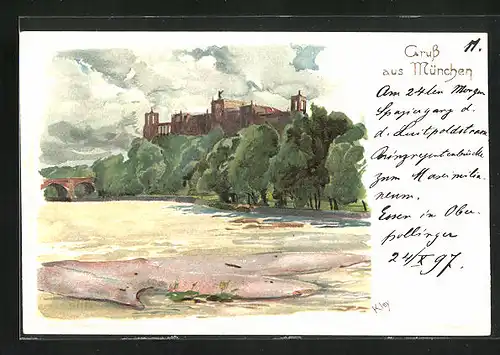 Gruß
aus München
11.
Am 24ten Morgen
Spaziergang d.
d. Luitpoldstrasse
Prinzregentenbrücke
zum Maximilia-
neum.
Essen in Ober-
pollinger
24/X 97.
Kley